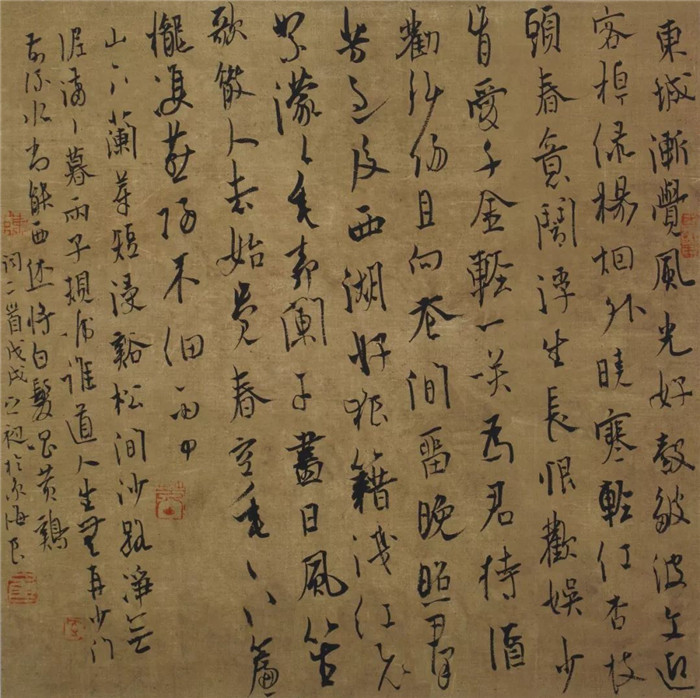 東城漸覺風光好縠皺波文迎
客棹绿楊烟外曉寒輕红杏枝
頭春意闹浮生長恨歡娱少
肯愛千金輕一笑為君持酒
勸斜陽且向花间留晚照群
芳过後西湖好狼籍残红飛
絮濛〻垂柳闌干盡日風笙
歌散人去始覺春空垂下簾
櫳雙燕歸来细雨中
山下蘭芽短浸谿松间沙路淨無
泥潇〻暮雨子規啼谁道人生無再少门
前流水尚能西休将白髮唱黄鷄
词二首戊戌之初於京海